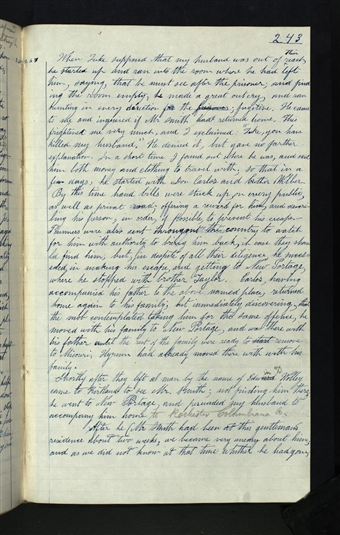 243
When Luke supposed that my husband was out of his reach,
he started up and ran into the room where he had left
him, saying, that he must see after the prisoner, and find
ing the room empty, he made a great outcry, and ran
hunting in every direction for the fugitive. He came
to me and inquired if Mr Smith had returned home. This
frightened me very much, and I exclaimed "Luke, you have
killed my husband." He denied it, but gave no further
explanation. In a short time I found out where he was, and sent
him both money and clothing to travel with, so that in a
few days, he started with Don Carlos and
By this time hand bills were stuck up on every
as well as private road; offering a reward for him, and descri
bing his person, in order, if possible, to prevent his escape.
Runners were also sent throughout the country to watch
for him with authority to bring him back, in case they shou
ld find him, but, in despite of all their diligence he succe
eded in making his escape, and getting to New Portage,
where he stopped with brother Taylor. Carlos, having
accompanied his father to the above named place, returned
home again to his family; but immediately discovering, that
the mob contemplated taking him for the same offence, he
moved with his family to New Portage, and was there with
his father until the rest of the family were ready to remove
to Missouri, Hyrum had already moved there with with his
family.
Shortly after they left a man by the name of Edward Wolley
came to Kirtland to see Mr Smith; not finding him there,
he went to New Portage, and persuaded my husband to
accompany him home to Rochester Columbiana Co.
After he (Mr Smith had been at this gentlemans
residence about two weeks, we became very uneasy about him;
and as we did not know at that time whether he had gone